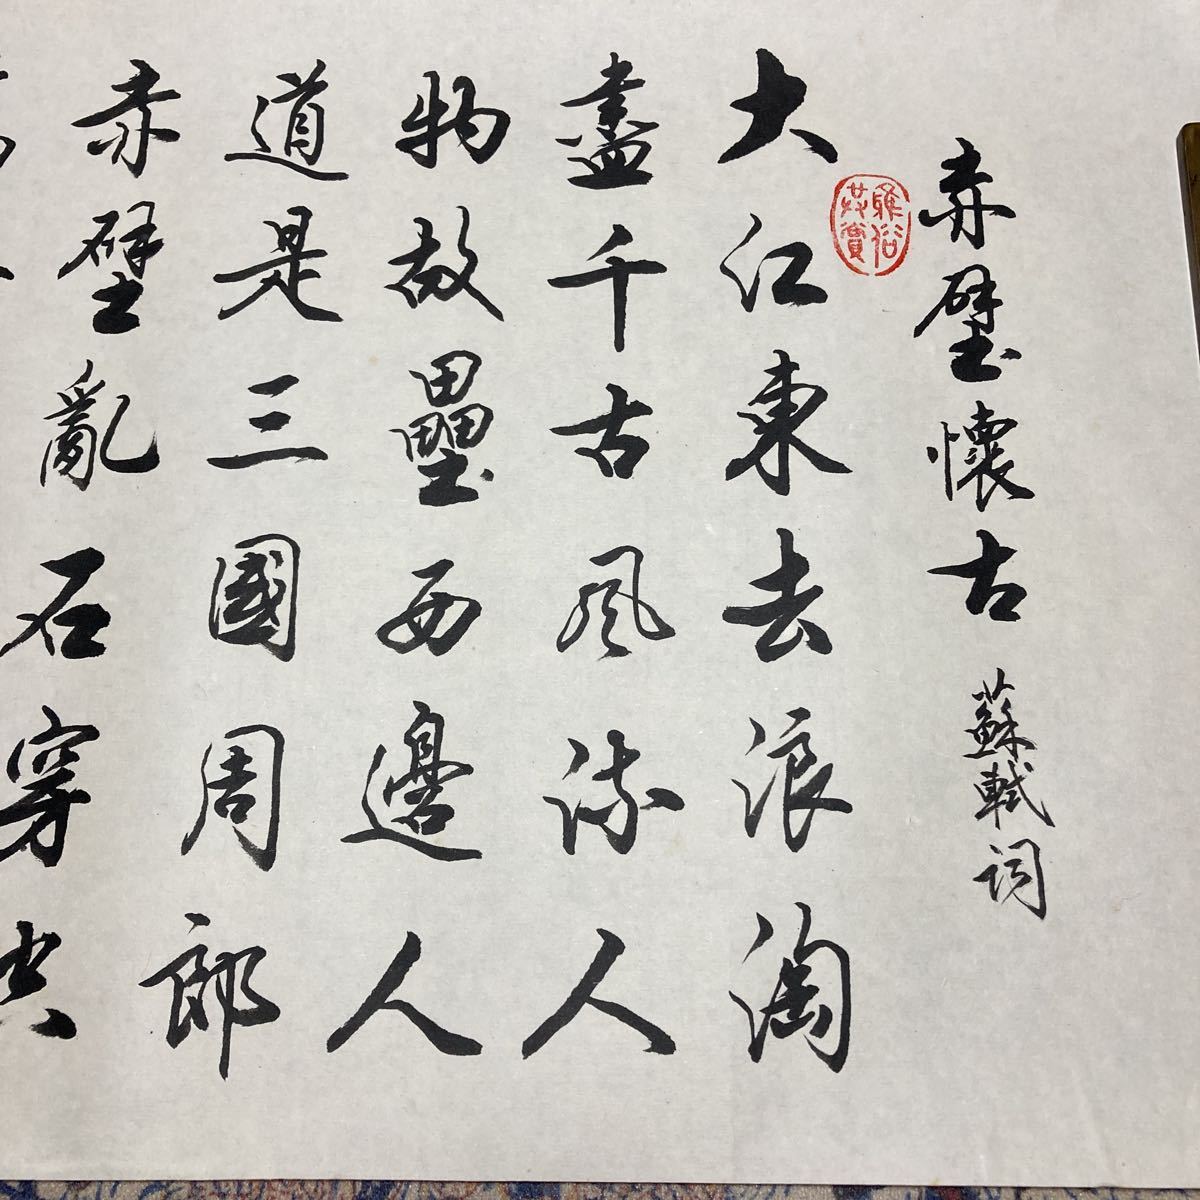 赤壁懷古 蘇軾詞
雅俗共賞
大江東去浪淘
盡千古風流人
物故壘西邊人
道是三國周郎
赤壁亂石穿空